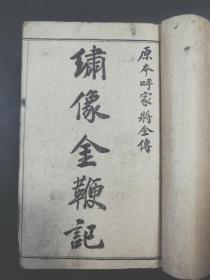 原本呼家將全傳
繡像金鞭記